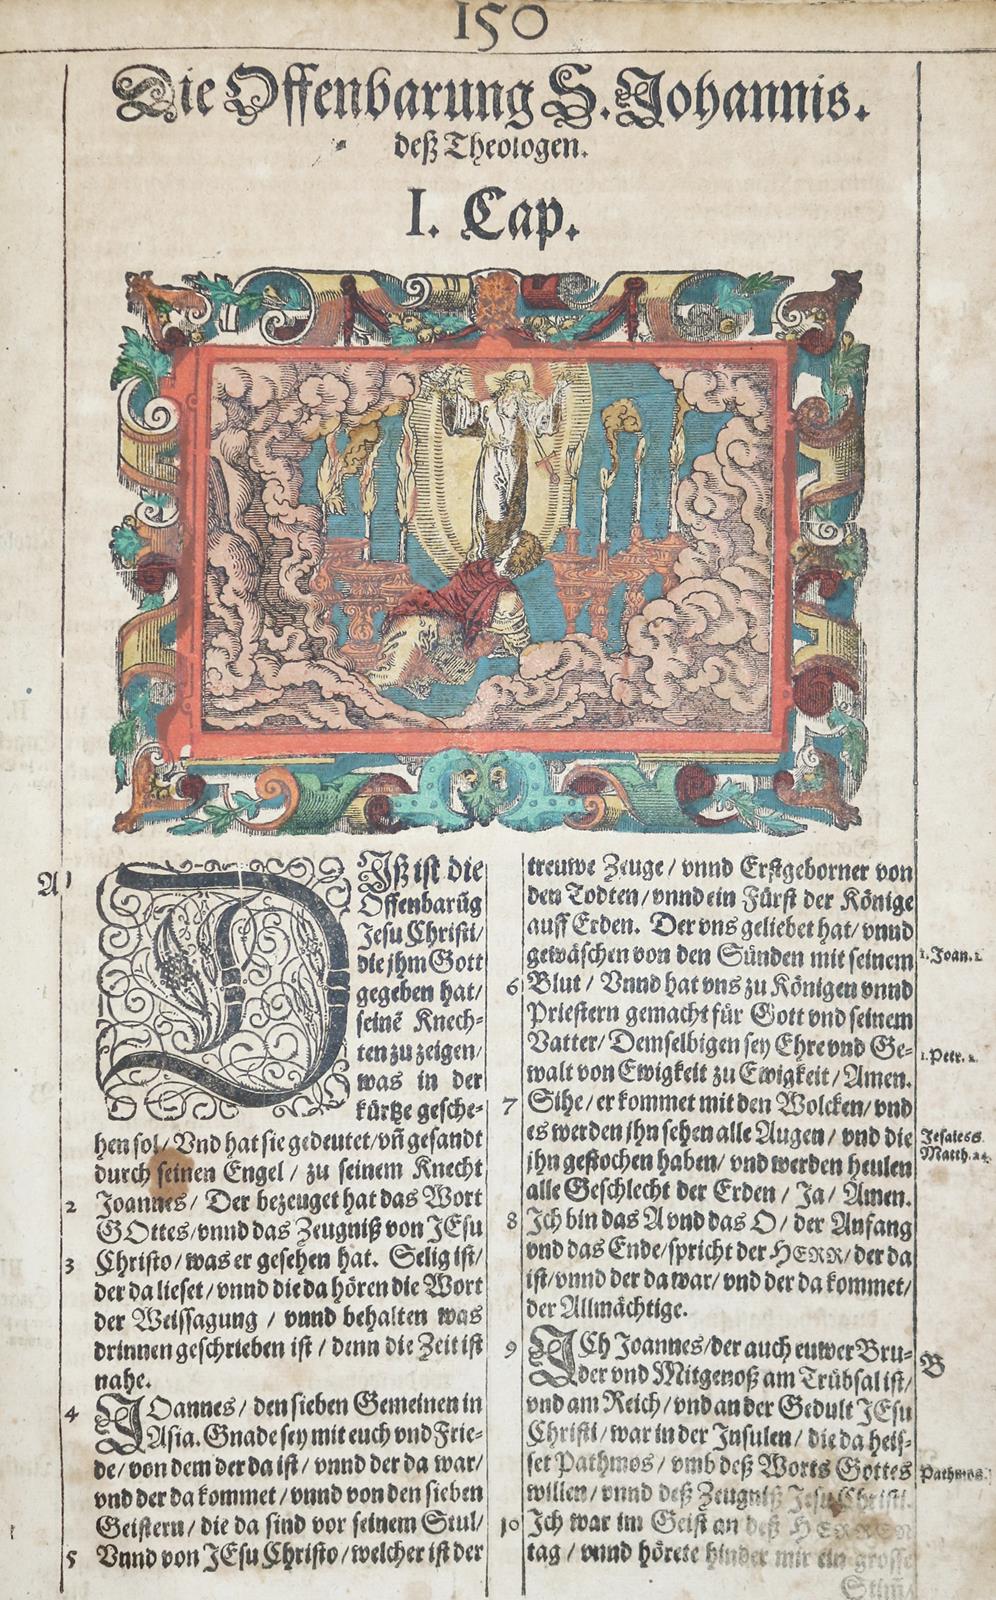 150
Die Offenbarung S. Johannis.
deß Theologen.
I. Cap.
A 1
DIß ist die
Offenbarūg
Jesu Christi/
die jhm Gott
gegeben hat/
seinē Knech-
ten zu zeigen/
was in der
kürtze gesche-
hen sol/ Vnd hat sie gedeutet/vñ gesandt
durch seinen Engel / zu seinem Knecht
2 Joannes/ Der bezeuget hat das Wort
GOttes/vnnd das Zeugniß von JEsu
3 Christo/was er gesehen hat. Selig ist/
der da lieset / vnnd die da hören die Wort
der Weissagung / vnnd behalten was
drinnen geschrieben ist / denn die Zeit ist
nahe.
4 JOannes / den sieben Gemeinen in
Asia. Gnade sey mit euch vnd Frie-
de/ von dem der da ist / vnnd der da war/
vnd der da kommet/ vnnd von den sieben
Geistern / die da sind vor seinem Stul/
5 Vnnd von JEsu Christo /welcher ist der
treuwe Zeuge / vnnd Erstgeborner von
den Todten / vnnd ein Fürst der Könige
auff Erden. Der vns geliebet hat/ vnnd
gewäschen von den Sünden mit seinem
1. Joan. 1.
6 Blut / Vnnd hat vns zu Königen vnnd
Priestern gemacht für Gott vnd seinem
Vatter/ Demselbigen sey Ehre vnd Ge-
1. Petr. 2.
walt von Ewigkeit zu Ewigkeit / Amen.
7 Sihe / er kommet mit den Wolcken/ vnd
es werden jhn sehen alle Augen / vnd die
Jesaie 53.
jhn gestochen haben/ vnd werden heulen
Matth. 24.
alle Geschlecht der Erden / Ja/ Amen.
8 Ich bin das A vnd das O / der Anfang
vnd das Ende/spricht der HERR/ der da
ist/vnnd der da war/ vnd der da kommet/
der Allmächtige.
9 ICh Joannes/der auch euwer Bru-
B
der vnd Mitgenoß am Trübsal ist/
vnd am Reich / vnd an der Gedult JEsu
Christi / war in der Insulen / die da heis-
set Pathmos / vmb deß Worts Gottes
Pathmos.
willen / vnnd deß Zeugniß Jesu Christi.
10 Ich war im Geist an deß HERREN
tag / vnnd hörete hinder mir ein grosse
Stim̃/